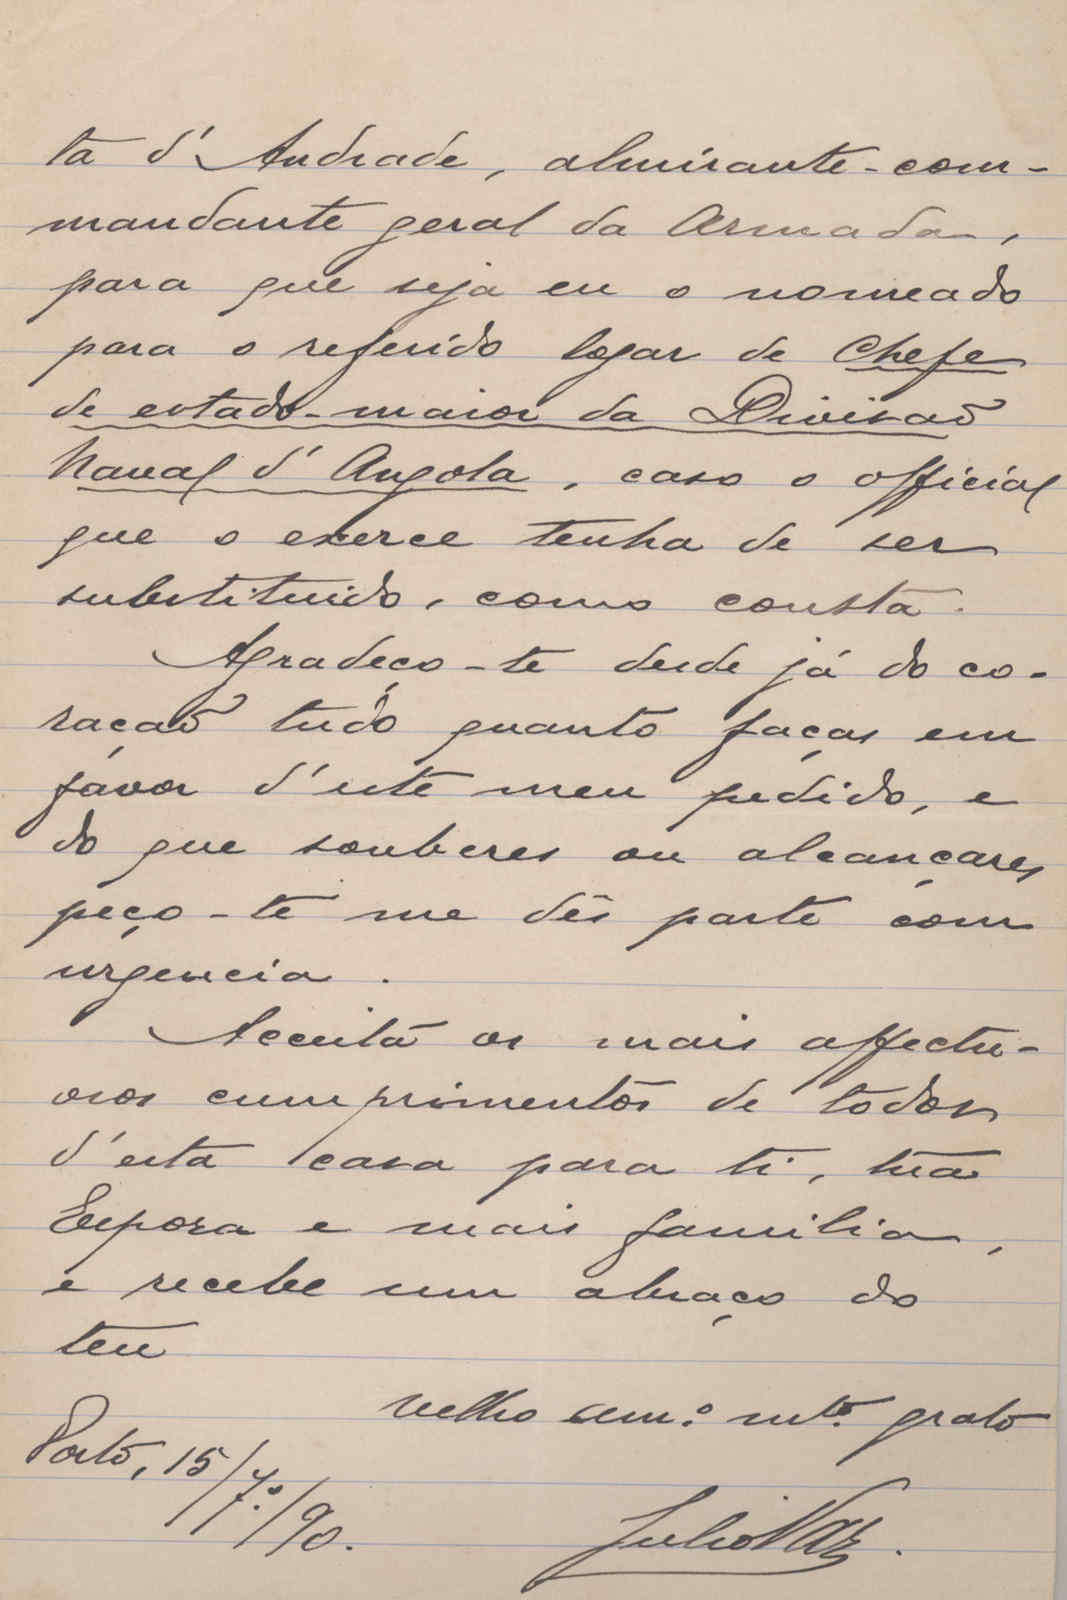 ta d'Andrade, almirante-com-
mandante geral da Armada,
para que seja eu o nomeado
para o referido logar de Chefe
de estado-maior da Divisaõ
Naval d'Angola, caso o official
que o exerce tenha de ser
substituido, como consta.
Agradeço-te desde já do co-
raçaõ tudo quanto faças em
favor d'este meu pedido, e
do que souberes ou alcançares
peço-te me dês parte com
urgencia.
Acceita os mais affectu-
osos cumprimentos de todos
d'esta casa para ti, tua
Esposa e mais familia,
e recebe um abraço do
teu
velho am.º mtº. grato
Porto, 15/7.º/90.
Julio Vaz.